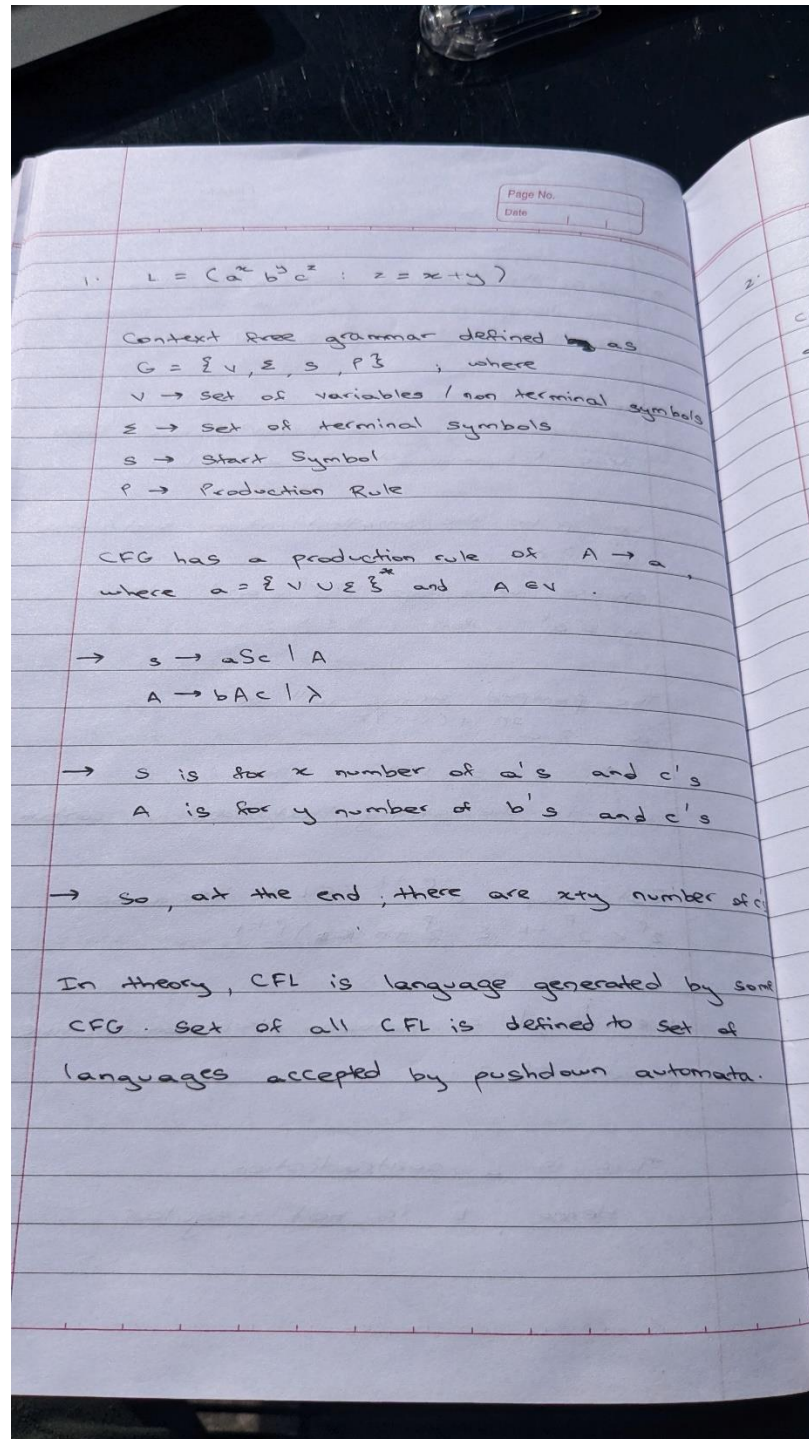 Page No.
Date
1. L = (a^x b^y c^z : z = x+y)
2.
Context free grammar defined as
G = {V, Σ, S, P} , where
V → set of variables / non terminal symbols
Σ → set of terminal symbols
S → Start Symbol
P → Production Rule
CFG has a production rule of A → a,
where a = {V ∪ Σ}* and A ∈ V.
→ S → aSc | A
A → bAc | λ
→ S is for x number of a's and c's
A is for y number of b's and c's
→ So, at the end, there are x+y number of c's
In theory, CFL is language generated by some
CFG. Set of all CFL is defined to set of
languages accepted by pushdown automata.